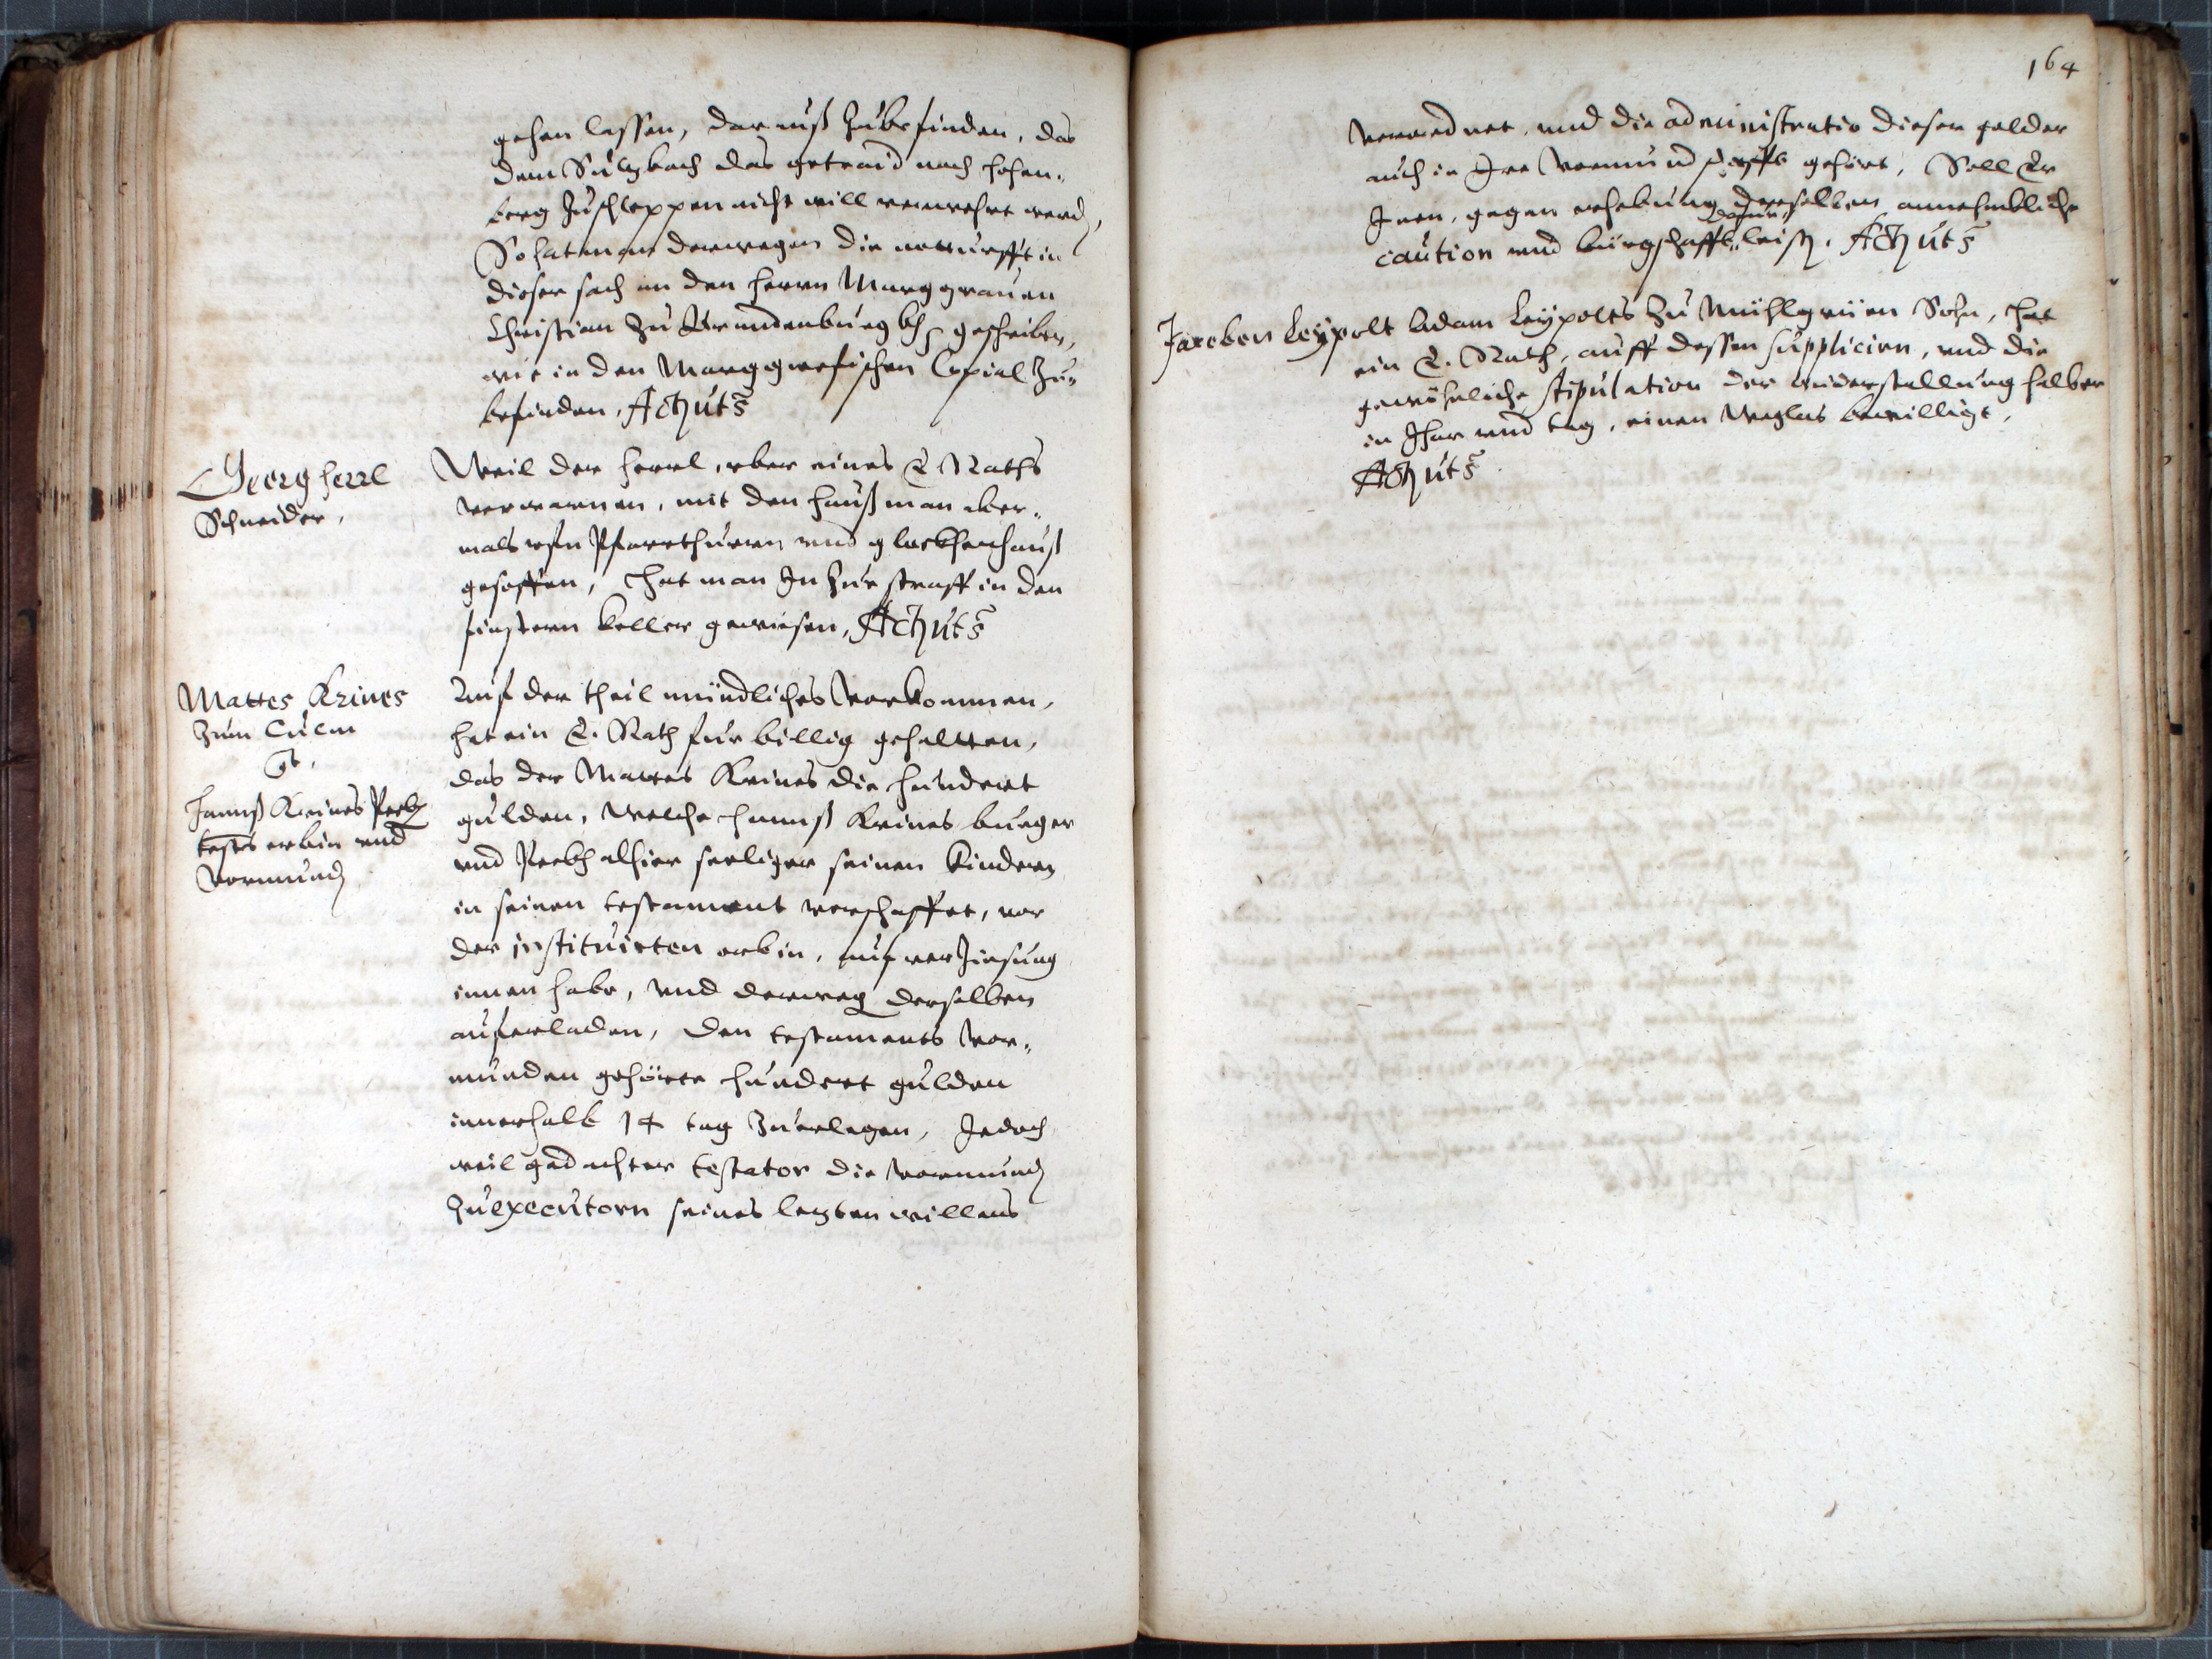 gehen lassen, darauß zubefinden, das
dem Sultzbach das getraid nach Hohen-
berg zuschleppen nicht will verwehrt werd,
So hat man derwegen die notturfft in
dieser sach an den herrn Marggrauen
Christian zu Brandenburg geschriben,
wie in den Marggrefischen Copial zu-
befinden, Act ut s
Georg Herrl
Schneider,
Weil der Herrl, vber eines E. Raths
verwarnen, mit den haußman aber-
mals vfn Pfarrthurrn vnd glockhenhauß
gesoffen, hat man In zur straff in den
finstern keller gewiesen, Act ut s
Mattes Krines
zum Culm
Hannß Krines
erbin vnd
Vormund
Auf der theil mündliches Vorkommen,
hat ein E. Rath fur billig gehaltten,
das der Mattes Krines die hundert
gulden, Welche Hannß Krines burger
vnd alhier seeliger seinen kindern
in seinen testament verschaffet, vor
der instituirten erbin, auf verzinsung
innen habe, vnd derweg derselben
auferladen, den testaments Vor-
munden gehörte hundert gulden
innerhalb 14 tag zuerlegen, Jedoch
weil gedachter testator die Vormund
zu executorn seines lezten willens
164
verordnet, vnd die administratio dieser gelder
auch in Ire Vormundschafft gehört, Soll Er
Inen, gegen erhebung derselben annehmbliche
caution vnd burgschafft dafür leist. Act ut s
Jacoben Leÿpolt Adam Leÿpolts zu Mühlgrüen Sohn, hat
ein E. Rath, auff dessen suppliciren, vnd die
gewöhnliche stipulation der widerstellung halber
in Jhar vnd tag, einen Weglas bewilligt,
Act ut s